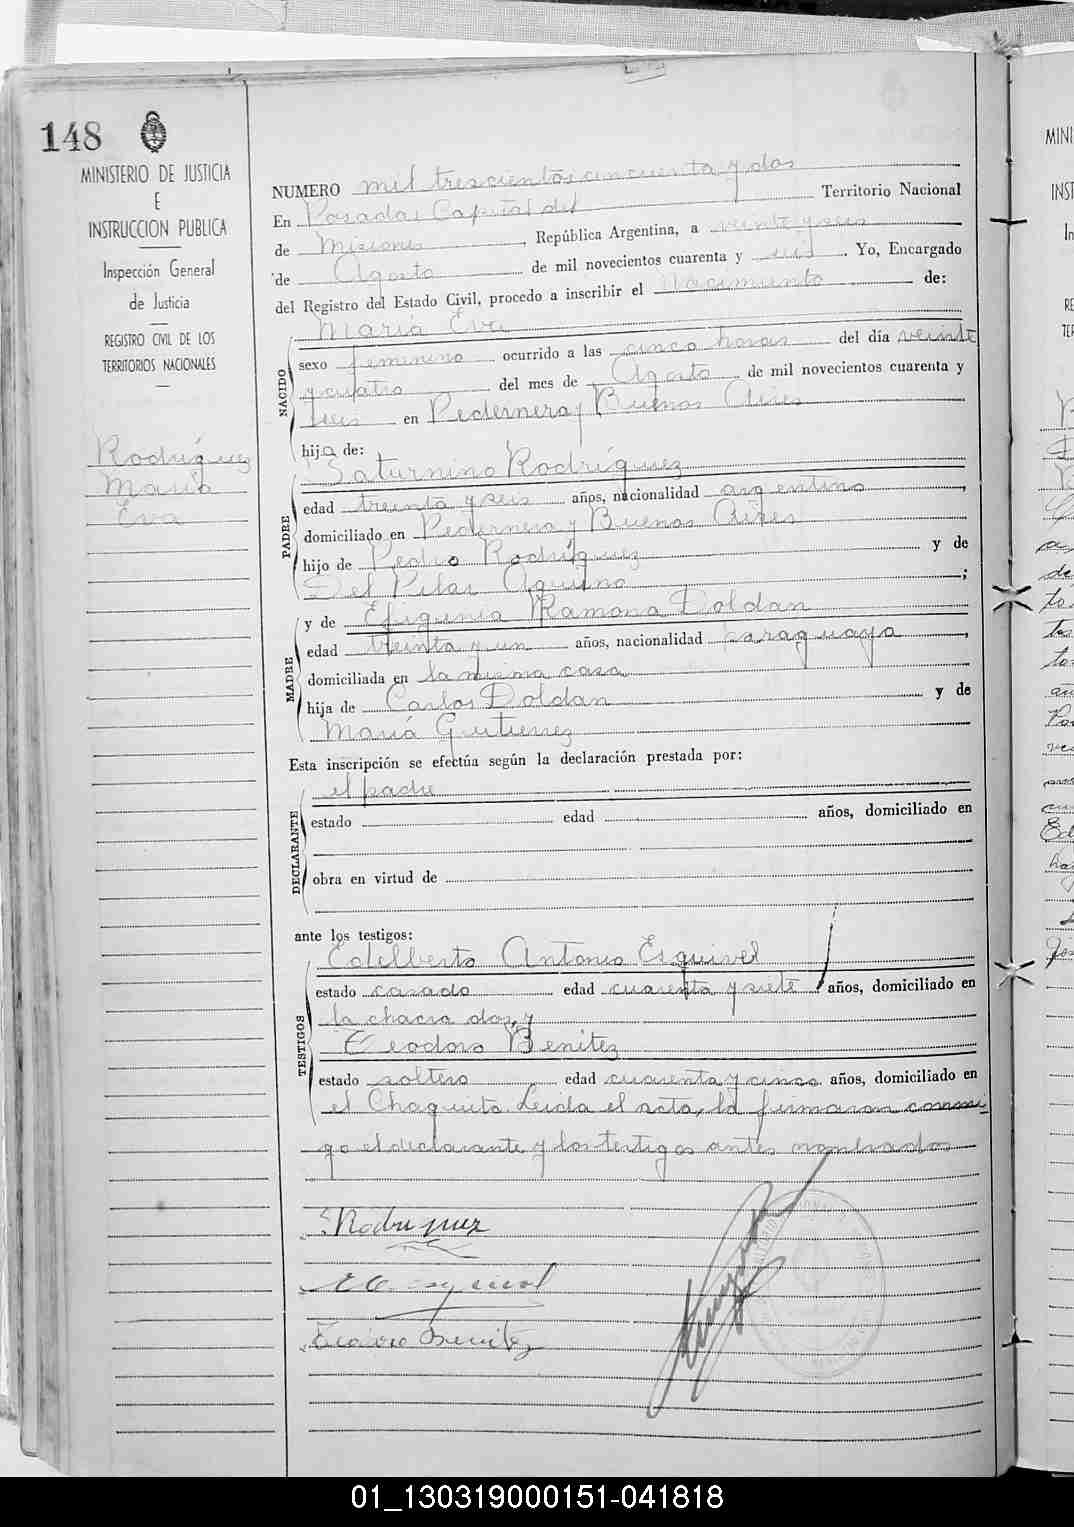 148
MINISTERIO DE JUSTICIA
E
INSTRUCCION PUBLICA
Inspección General
de Justicia
REGISTRO CIVIL DE LOS
TERRITORIOS NACIONALES
Rodríguez
María
Eva
NUMERO mil trescientos cincuenta y dos
En Posadas Capital del Territorio Nacional
de Misiones, República Argentina, a veinte y seis
de Agosto de mil novecientos cuarenta y seis. Yo, Encargado
del Registro del Estado Civil, procedo a inscribir el Nacimiento de:
María Eva
NACIDO
sexo femenino ocurrido a las cinco horas del día veinte
y cuatro del mes de Agosto de mil novecientos cuarenta y
seis en Pedernera y Buenos Aires
hija de:
Saturnino Rodríguez
PADRE
edad treinta y seis años, nacionalidad argentino,
domiciliado en Pedernera y Buenos Aires
hijo de Pedro Rodríguez y de
Del Pilar Aquino;
y de Efigenia Ramona Doldan
MADRE
edad treinta y un años, nacionalidad paraguaya,
domiciliada en la misma casa
hija de Carlos Doldan y de
María Gutierrez
Esta inscripción se efectúa según la declaración prestada por:
el padre
DECLARANTE
estado edad años, domiciliado en
obra en virtud de
ante los testigos:
Edelberto Antonio Esquivel
TESTIGOS
estado casado edad cuarenta y siete años, domiciliado en
la chacra dos, y
Teodoro Benitez
estado soltero edad cuarenta y cinco años, domiciliado en
el Chaquito. Leida el acta, la firmaron conmi-
go el declarante y los testigos antes nombrados
S Rodriguez
E A Esquivel
Teodoro Benitez
MINI
INST
In
RE
TER
01_130319000151-041818